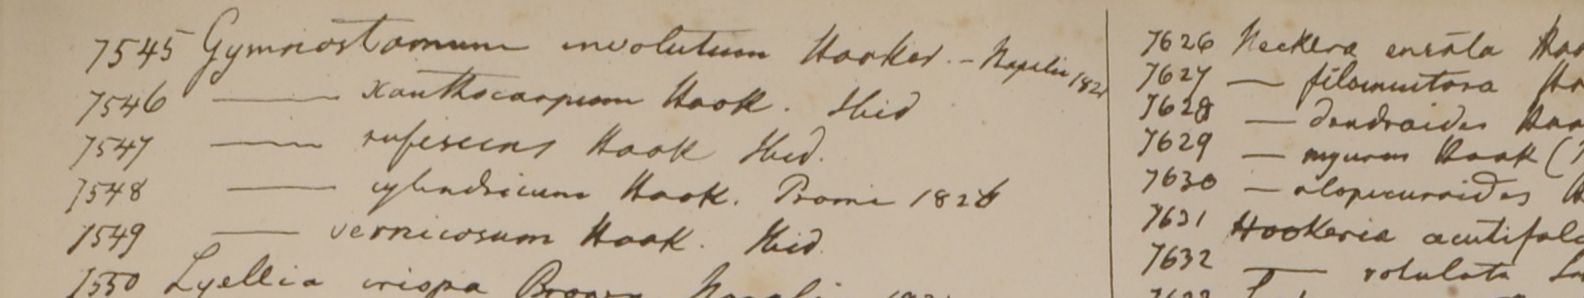 7545 Gymnostomum involutum Hooker. - Napalia 1821
7546 — xanthocarpum Hook. Ibid
7547 — rufescens Hook Ibid.
7548 — cylindricum Hook. Prome 1826
7549 — vernicosum Hook. Ibid
7550 Lyellia crispa Brown
7626 Neckera ensata
7627 — filamentosa
7628 — dendroides
7629 — myurum Hook (
7630 — alopecuroides
7631 Hookeria acutifol
7632 — rotulata